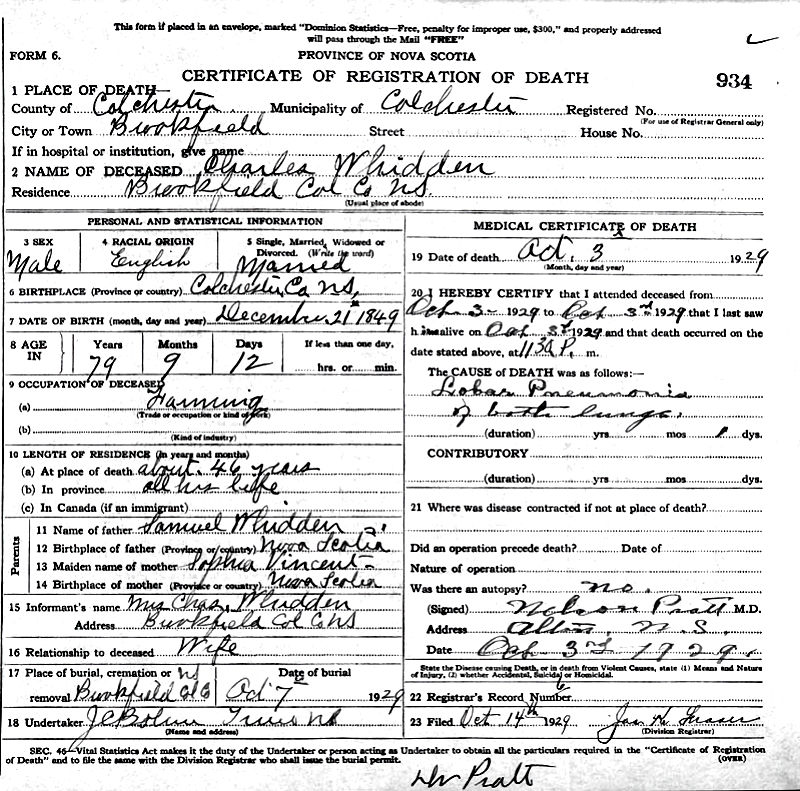 This form if placed in an envelope, marked "Dominion Statistics—Free, penalty for improper use, $300," and properly addressed
will pass through the Mail "FREE"
FORM 6.
PROVINCE OF NOVA SCOTIA
CERTIFICATE OF REGISTRATION OF DEATH
934
1 PLACE OF DEATH—
County of Colchester Municipality of Colchester Registered No.
(For use of Registrar General only)
City or Town Brookfield Street House No.
If in hospital or institution, give name
2 NAME OF DECEASED Charles Whidden
Residence Brookfield Col Co NS.
(Usual place of abode)
PERSONAL AND STATISTICAL INFORMATION
3 SEX 4 RACIAL ORIGIN 5 Single, Married, Widowed or Divorced. (Write the word)
Male English Married
6 BIRTHPLACE (Province or country) Colchester Co NS.
7 DATE OF BIRTH (month, day and year) December 21 1849
8 AGE IN Years Months Days If less than one day,
79 9 12 hrs. or min.
9 OCCUPATION OF DECEASED
(a) Farming
(Trade or occupation or kind of work)
(b)
(Kind of industry)
10 LENGTH OF RESIDENCE (In years and months)
(a) At place of death about 46 years
(b) In province all his life
(c) In Canada (if an immigrant)
Parents
11 Name of father Samuel Whidden
12 Birthplace of father (Province or country) Nova Scotia
13 Maiden name of mother Sophia Vincent
14 Birthplace of mother (Province or country) Nova Scotia
15 Informant's name Mrs Chas. Whidden
Address Brookfield Col Co NS
16 Relationship to deceased Wife
17 Place of burial, cremation or removal Brookfield Col Co NS Date of burial Oct 7th 1929
18 Undertaker Truro NS
(Name and address)
MEDICAL CERTIFICATE OF DEATH
19 Date of death Oct. 3 1929
(Month, day and year)
20 I HEREBY CERTIFY that I attended deceased from
Oct 3 1929 to Oct 3rd 1929 that I last saw
him alive on Oct 3rd 1929 and that death occurred on the
date stated above, at 11 30 P. m.
The CAUSE of DEATH was as follows:—
Lobar Pneumonia
of both lungs.
(duration) yrs mos 1 dys.
CONTRIBUTORY
(duration) yrs. mos. dys.
21 Where was disease contracted if not at place of death?
Did an operation precede death? Date of
Nature of operation
Was there an autopsy? no.
(Signed) Nelson Pratt M.D.
Address N.S.
Date Oct 3rd 1929.
State the Disease causing Death, or in death from Violent Causes, state (1) Means and Nature
of Injury, (2) whether Accidental, Suicidal or Homicidal.
22 Registrar's Record Number 6
23 Filed Oct 14th 1929 Jas
(Division Registrar)
SEC. 46—Vital Statistics Act makes it the duty of the Undertaker or person acting as Undertaker to obtain all the particulars required in the "Certificate of Registration
of Death" and to file the same with the Division Registrar who shall issue the burial permit.
(OVER)
Dr Pratt